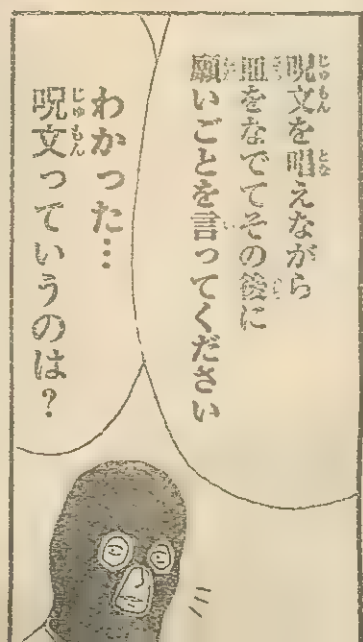 呪文を唱えながら
皿をなでてその後に
願いごとを言ってください
わかった…
呪文っていうのは？